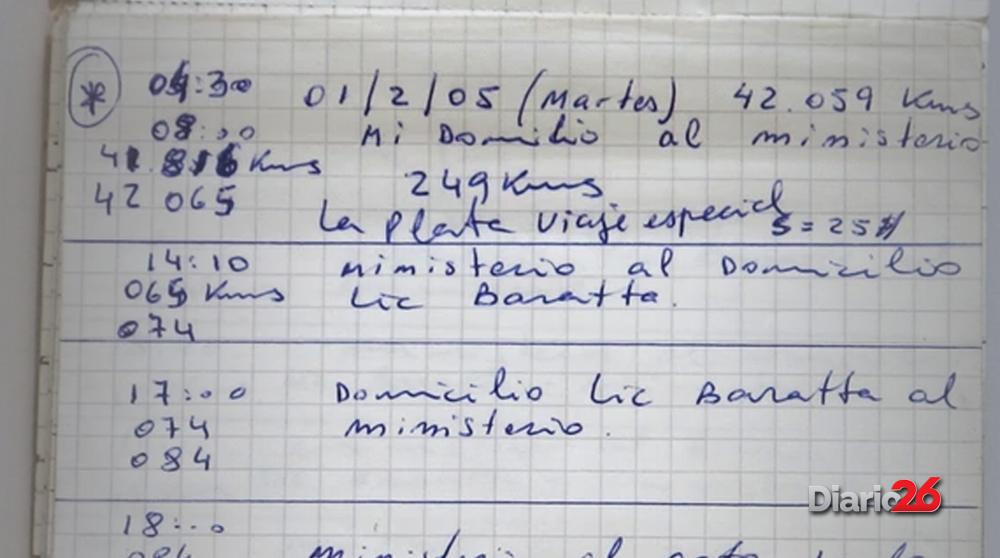 * 04:30 01/2/05 (Martes) 42.059 Kms
08:00 Mi Domicilio al ministerio
41.816 Kms 249 Kms
42 065 La Plata Viaje especial $=25#
14:10 ministerio al Domicilio
065 Kms Lic Baratta.
074
17:00 Domicilio Lic Baratta al
074 ministerio.
084
18:00
084 ministerio al
Diario26